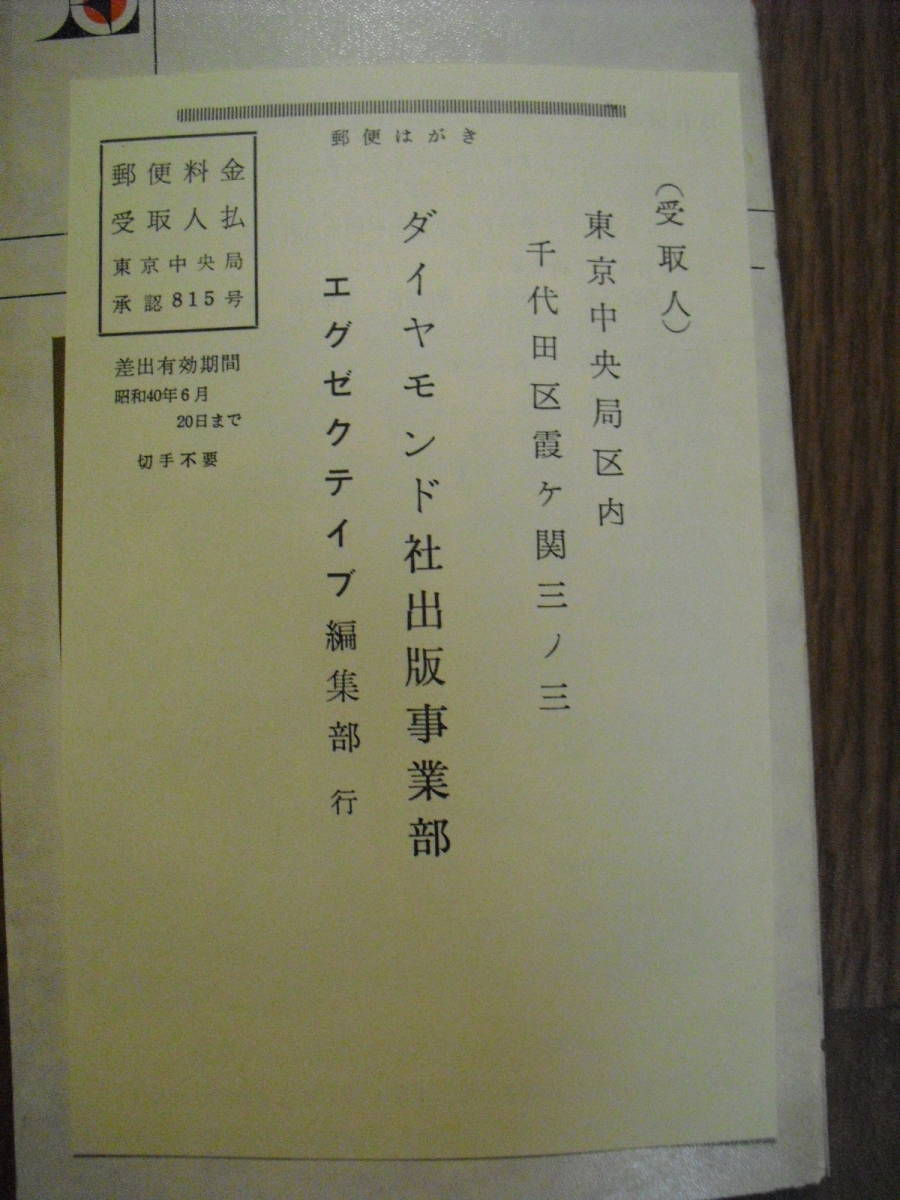 郵便はがき
(受取人)
東京中央局区内
千代田区霞ケ関三ノ三
ダイヤモンド社出版事業部
エグゼクティブ編集部 行
郵便料金
受取人払
東京中央局
承認815号
差出有効期間
昭和40年6月
20日まで
切手不要